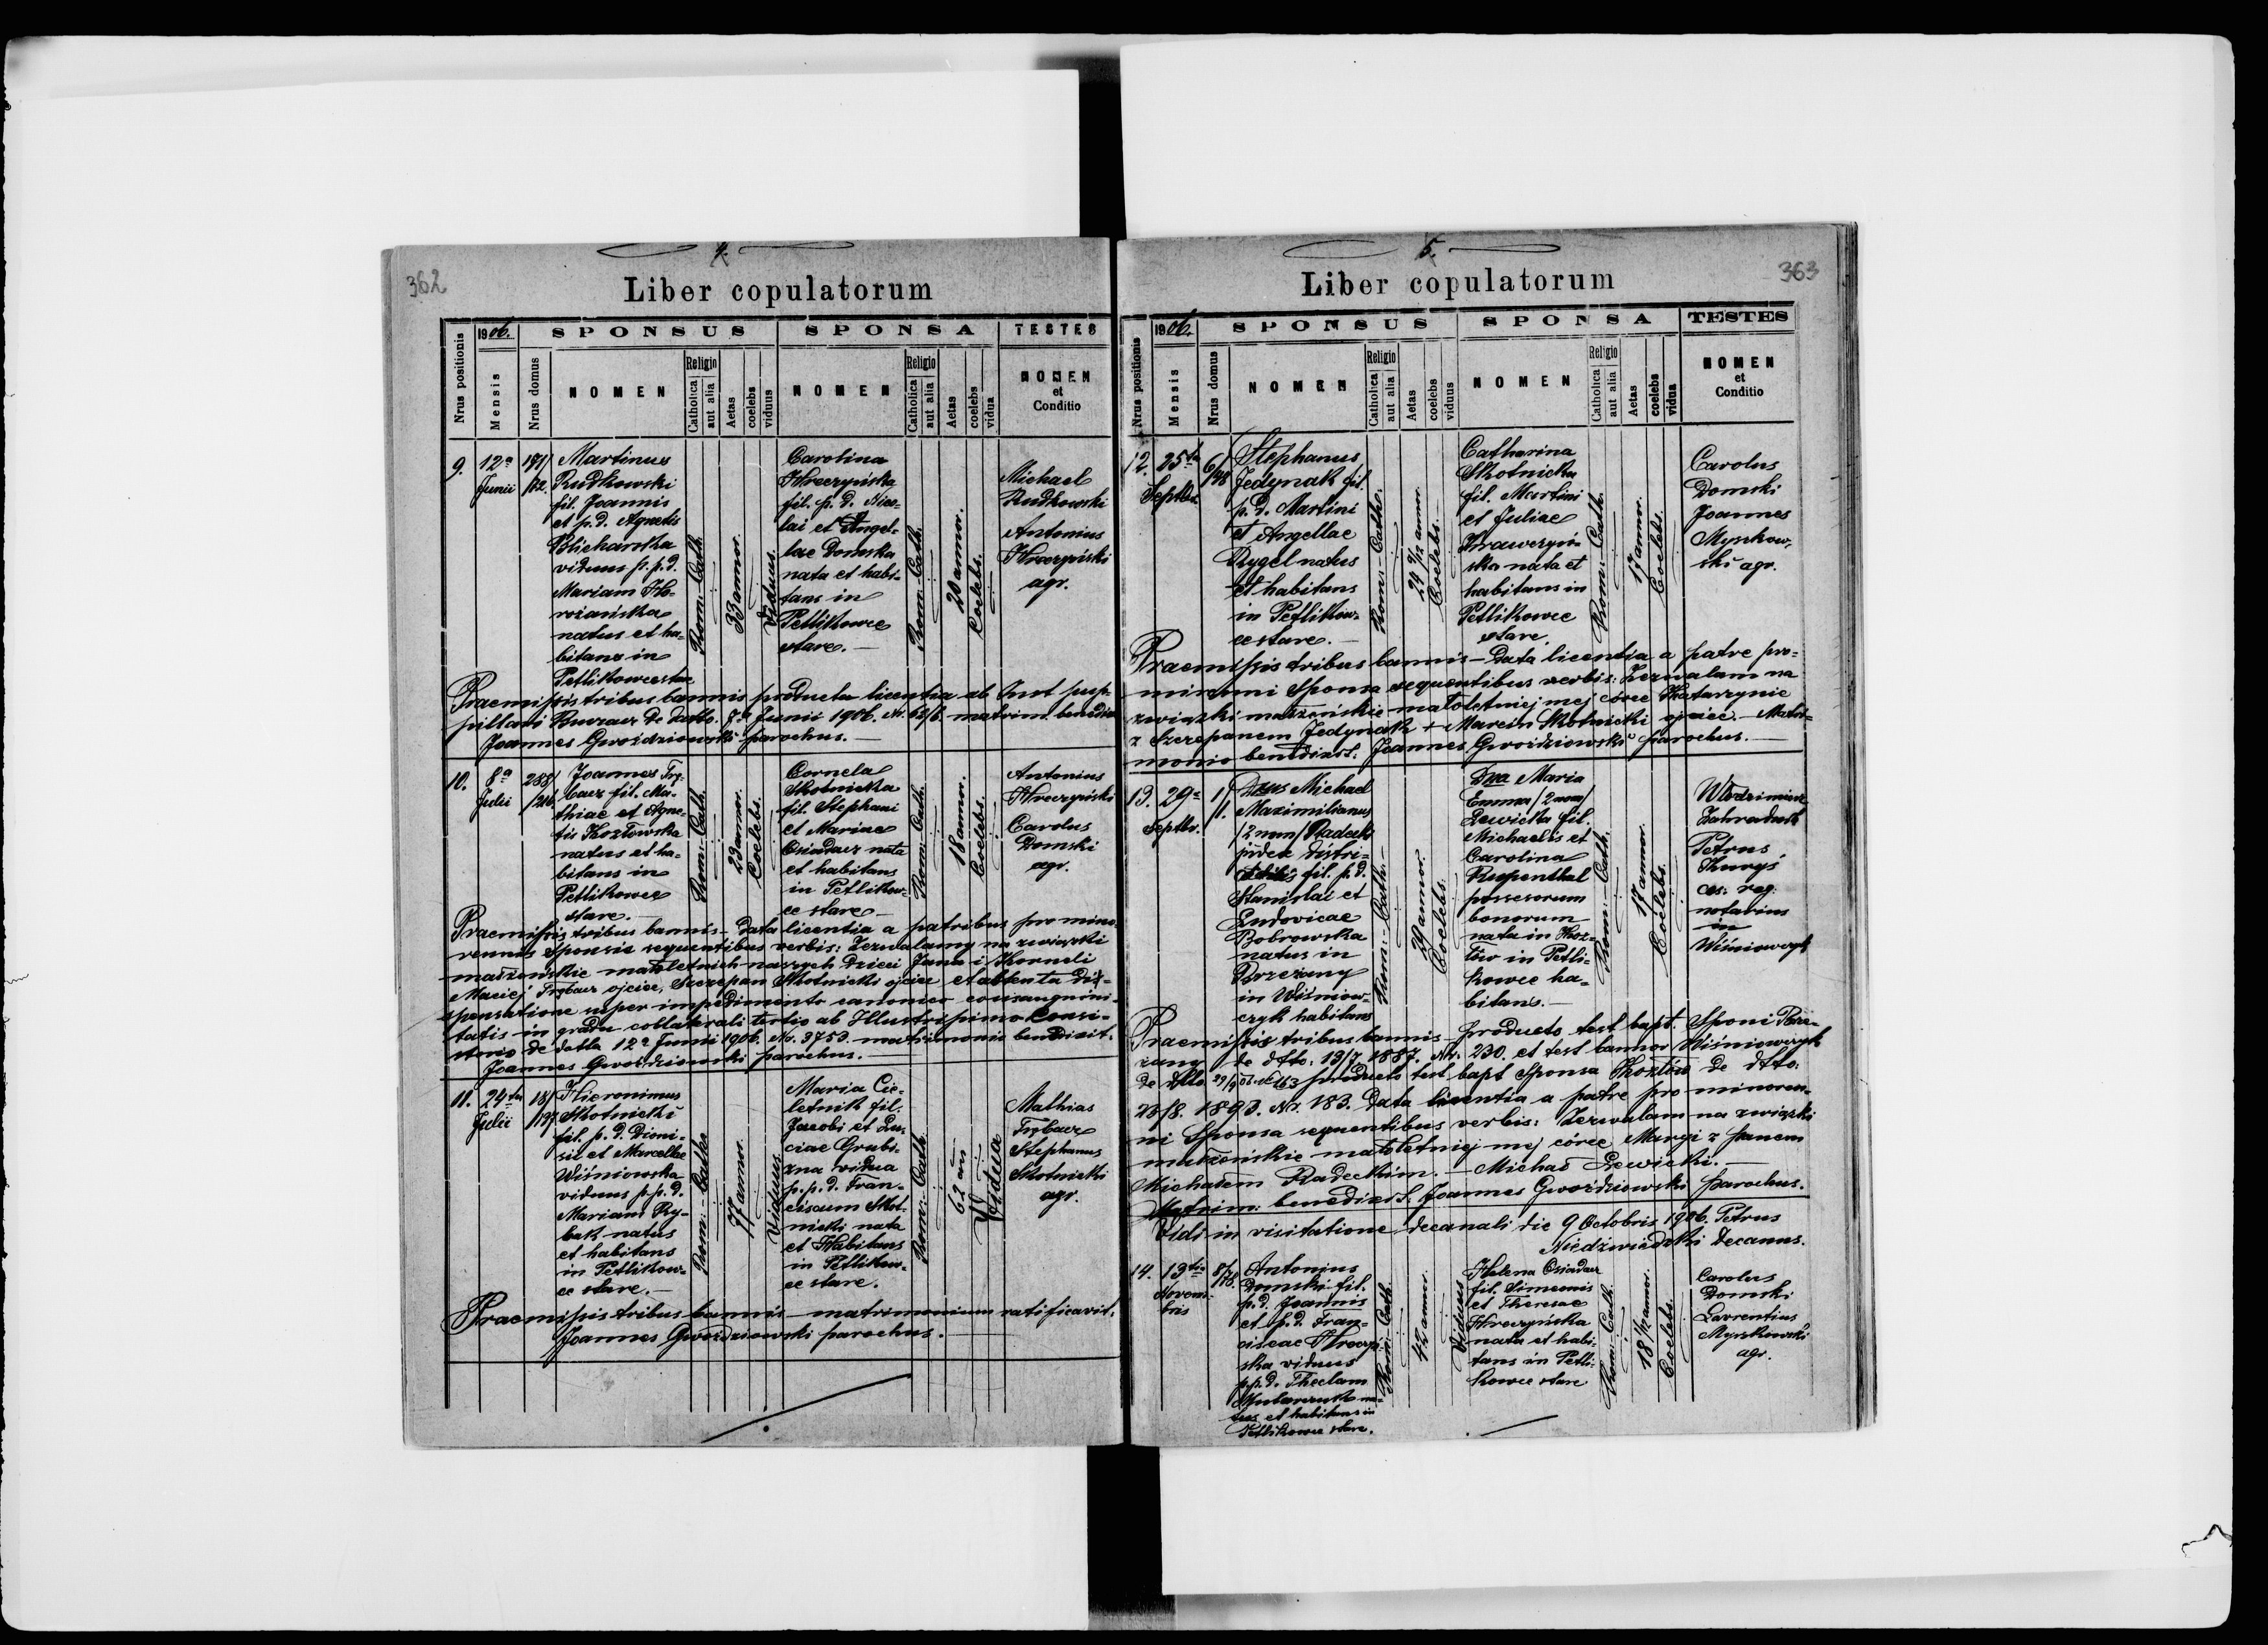 4.
362
Liber copulatorum
Nrus positionis
1906.
Mensis
Nrus domus
SPONSUS
NOMEN
Religio
Catholica
aut alia
Aetas
coelebs
viduus
SPONSA
NOMEN
Religio
Catholica
aut alia
Aetas
coelebs
vidua
TESTES
NOMEN
et
Conditio
9.
12a
Junii
181/
/12.
Martinus
Rudkowski
fil. Joannis
et p. d. Agnetis
Blicharska
viduus p. p. d.
Mariam
natus et ha-
bitans in
Petlikowce stare
Rom: Cath.
33 annor.
Viduus.
Carolina
Hreczyńska
fil. p. d. Nico-
lai et Angel-
lae Domska
nata et habi-
tans in
Petlikowce
stare.
Rom: Cath.
20 annor.
Coelebs.
Michael
Rudkowski
Antonius
Hreczyński
agr.
Praemissis tribus bannis producta licentia ab Inst pup-
pillari Buczacz de datto. 7a Junii 1906. Nr. 62/6. matrim.
Joannes Gwoździowski parochus.
10.
8a
Julii
288/
/216.
Joannes Try-
bacz fil. Ma-
thiae et Agne-
tis Kozłowska
natus et ha-
bitans in
Petlikowce
stare.
Rom: Cath.
23 annor.
Coelebs.
Cornela
Skotnicka
fil. Stephani
et Mariae
Osiadacz nata
et habitans
in Petlikow-
ce stare
Rom: Cath.
18 annor.
Coelebs.
Antonius
Hreczyński
Carolus
Domski
agr.
Praemissis tribus bannis - data licentia a patribus pro mino-
rennis Sponsis sequentibus verbis: Zezwalamy na związki
małżeńskie małoletnich naszych dzieci Jana i Korneli
Maciej Trybacz ojciec, Szczepan Skotnicki ojciec et obtenta dis-
pensatione super impedimento canonico consanguini-
tatis in gradu collaterali tertio ab Illustrissimo Consi-
storio de datta 12a Junii 1906. Nr. 3753. matrimonio benedixit.
Joannes Gwoździowski parochus.
11.
24ta
Julii
18/
/197
Hieronimus
Skotnicki
fil. p. d. Dioni-
sii et Marcellae
Wiśniowska
viduus p. p. d.
Mariam Ry-
bak natus
et habitans
in Petlikow-
ce stare.
Rom: Cath.
77 annor.
Viduus
Maria Cie-
letnik fil.
Jacobi et Lu-
ciae Grubi-
zna vidua
p. p. d. Fran-
ciscum Skot-
nicki nata
et Habitans
in Petlikow-
ce stare.
Rom: Cath.
62 an
Vidua
Mathias
Trybacz
Stephanus
Skotnicki
agr.
Praemissis tribus bannis matrimonium ratificavit.
Joannes Gwoździowski parochus.
5.
363
Liber copulatorum
Nrus positionis
1906.
Mensis
Nrus domus
SPONSUS
NOMEN
Religio
Catholica
aut alia
Aetas
coelebs
viduus
SPONSA
NOMEN
Religio
Catholica
aut alia
Aetas
coelebs
vidua
TESTES
NOMEN
et
Conditio
12.
25ta
Septbr.
6/
Stephanus
Jedynak fil.
p. d. Martini
et Angellae
Rygel natus
et habitans
in Petlikow-
ce stare.
Rom: Cath.
Coelebs.
Catharina
Skotnicka
fil. Martini
et Juliae
Krawczyń-
ska nata et
habitans in
Petlikowce
stare.
Rom: Cath.
17 annor.
Coelebs.
Carolus
Domski
Joannes
Myszkow-
ski agr.
Praemissis tribus bannis - Data licentia a patre pro
minorni Sponsa sequentibus verbis: Zezwalam na
związki małżeńskie małoletniej mej córce Katarzynie
z Szczepanem Jedynak + Marcin Skotnicki ojciec. - Matri-
monio benedixit. Joannes Gwoździowski parochus.
13.
29a
Septbr.
1/
/1.
Dnus Michael
Maximilianus
/2 nom/ Radecki
judex distri-
fil. p. d.
Stanislai et
Ludovicae
Bobrowska
natus in
Brzeżany
in Wiśniow-
czyk habitans
Rom: Cath.
29 annor.
Coelebs.
Dna Maria
Emma /2 nom/
Lewicka fil.
Michaelis et
Carolina
Rupenthal
possesorum
bonorum
nata in Koz-
łów in Petli-
kowce ha-
bitans.
Rom: Cath.
17 annor.
Coelebs.
Włodzimierz
Zahradnik
Petrus
Kuryś
ces: reg:
notarius
in
Wiśniowczyk
Praemissis tribus bannis - producto test bapt. Sponsi Brze-
żany de dtto. 19/7 1887. Nr. 230. et test bannor Wiśniowczyk
de dtto 29/9 06 Nr 163 producto test bapt Sponsa Kozłów de dtto:
28/8. 1893. Nr. 183. Data licentia a patre pro minoren-
ni Sponsa sequentibus verbis: Zezwalam na związki
małżeńskie małoletniej mej córce Maryi z panem
Michałem Radeckim. - Michał Lewicki.
Matrim: benedixit. Joannes Gwoździowski parochus.
Vidi in visitatione decanali die 9 Octobris 1906. Petrus
Niedźwiadzki Decanus.
14.
13tia
Novem-
bris
8/
Antonius
Domski fil.
p. d. Joannis
et p. d. Fran-
ciscae Hreczy-
ska viduus
p. p. d. Theclam
na-
tus et habitans in
Petlikowce stare.
Rom: Cath.
42 annor.
Viduus
Helena Osiadacz
fil. Simeonis
et Theresae
Hreczyńska
nata et habi-
tans in Petli-
kowce stare
Rom: Cath.
18 1/12 annor.
Coelebs.
Carolus
Domski
Laurentius
Myszkowski
agr.